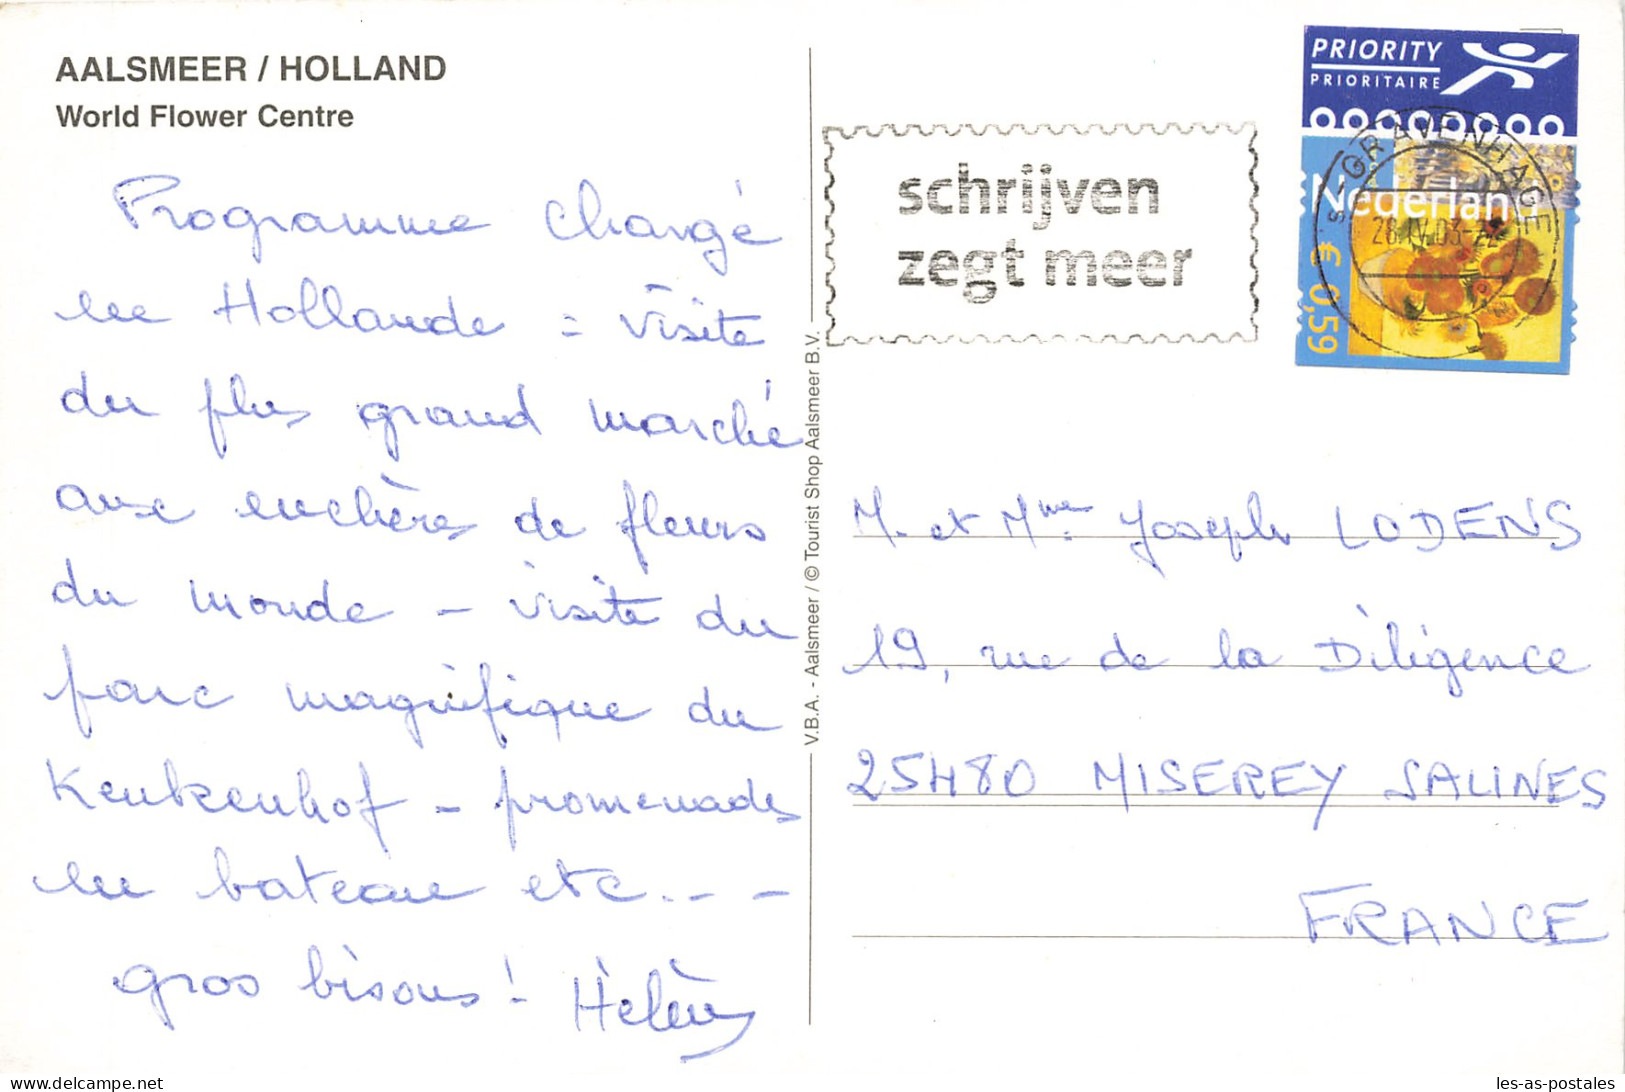 AALSMEER / HOLLAND
World Flower Centre
Programme chargé
en Hollande = visite
du plus grand marché
aux enchères de fleurs
du monde - visite du
parc magnifique du
Keukenhof - promenades
en bateau etc. - -
gros bisous ! Hélène
V.B.A. - Aalsmeer / © Tourist Shop Aalsmeer B.V.
schrijven
zegt meer
PRIORITY
PRIORITAIRE
Nederland
€ 0,59
's-GRAVENHAGE
28.IV.03-22
M. et Mme Joseph LODENS
19, rue de la Diligence
25480 MISEREY SALINES
FRANCE
les-as-postales
delcampe.net